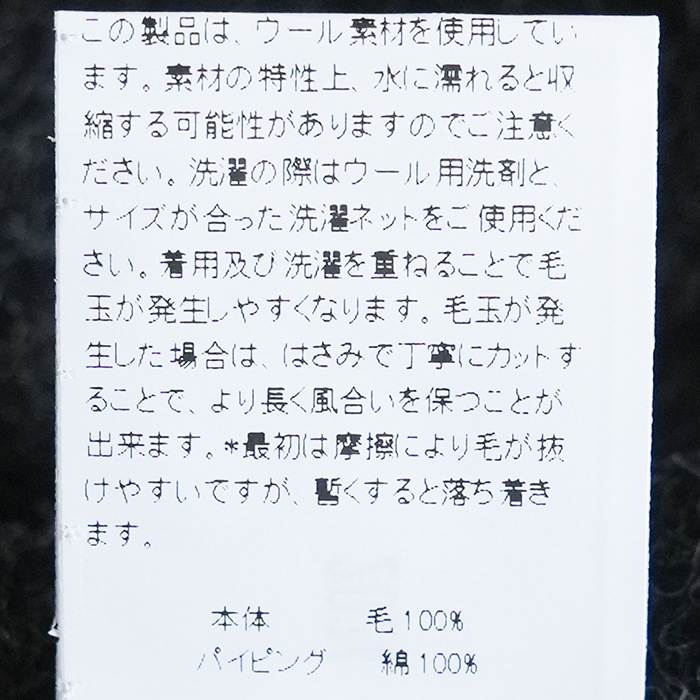 この製品は、ウール素材を使用してい
ます。素材の特性上、水に濡れると収
縮する可能性がありますのでご注意く
ださい。洗濯の際はウール用洗剤と、
サイズが合った洗濯ネットをご使用くだ
さい。着用及び洗濯を重ねることで毛
玉が発生しやすくなります。毛玉が発
生した場合は、はさみで丁寧にカットす
ることで、より長く風合いを保つことが
出来ます。*最初は摩擦により毛が抜
けやすいですが、暫くすると落ち着き
ます。
本体 毛100%
パイピング 綿100%